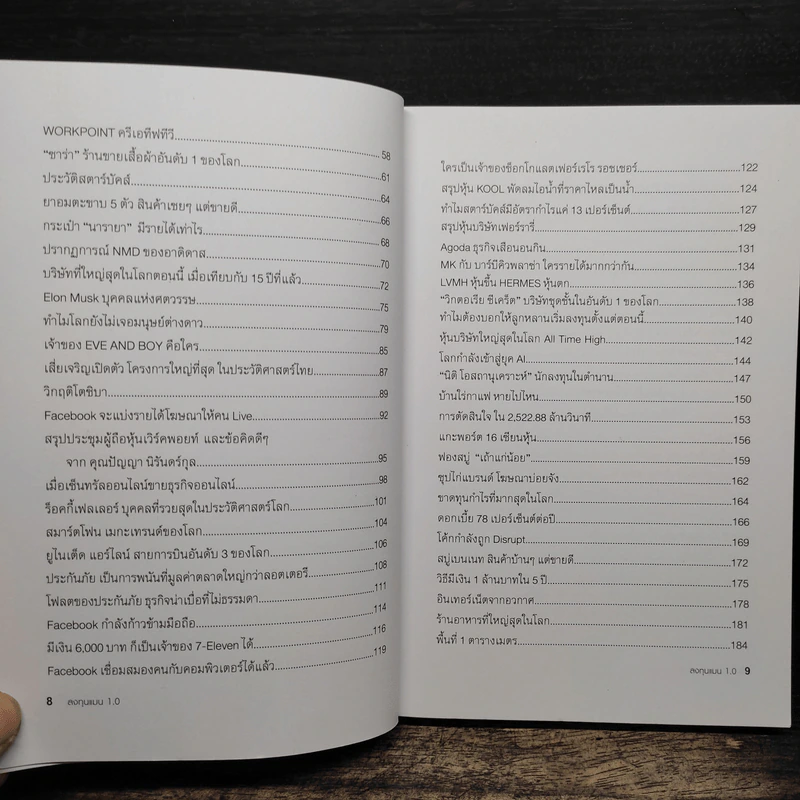 WORKPOINT ครีเอทีฟทีวี 58
"ซาร่า" ร้านขายเสื้อผ้าอันดับ 1 ของโลก 61
ประวัติสตาร์บัคส์ 64
ยาอมตะขาบ 5 ตัว สินค้าเชยๆ แต่ขายดี 66
กระเป๋า "นารายา" มีรายได้เท่าไร 68
ปรากฏการณ์ NMD ของอาดิดาส 70
บริษัทที่ใหญ่สุดในโลกตอนนี้ เมื่อเทียบกับ 15 ปีที่แล้ว 72
Elon Musk บุคคลแห่งศตวรรษ 75
ทำไมโลกยังไม่เจอมนุษย์ต่างดาว 79
เจ้าของ EVE AND BOY คือใคร 85
เสี่ยเจริญเปิดตัว โครงการใหญ่ที่สุด ในประวัติศาสตร์ไทย 87
วิกฤติโตชิบา 89
Facebook จะแบ่งรายได้โฆษณาให้คน Live 92
สรุปประชุมผู้ถือหุ้นเวิร์คพอยท์ และข้อคิดดีๆ
จาก คุณปัญญา นิรันดร์กุล 95
เมื่อเซ็นทรัลออนไลน์ขายธุรกิจออนไลน์ 98
ร็อคกี้เฟลเลอร์ บุคคลที่รวยสุดในประวัติศาสตร์โลก 101
สมาร์ตโฟน เมกะเทรนด์ของโลก 104
ยูไนเต็ด แอร์ไลน์ สายการบินอันดับ 3 ของโลก 106
ประกันภัย เป็นการพนันที่มูลค่าตลาดใหญ่กว่าลอตเตอรี่ 108
โฟลตของประกันภัย ธุรกิจน่าเบื่อที่ไม่ธรรมดา 111
Facebook กำลังก้าวข้ามมือถือ 114
มีเงิน 6,000 บาท ก็เป็นเจ้าของ 7-Eleven ได้ 116
Facebook เชื่อมสมองคนกับคอมพิวเตอร์ได้แล้ว 119
8 ลงทุนแมน 1.0
ใครเป็นเจ้าของช็อกโกแลตเฟอร์เรโร รอชเชอร์ 122
สรุปหุ้น KOOL พัดลมไอน้ำที่ราคาไหลเป็นน้ำ 124
ทำไมสตาร์บัคส์มีอัตรากำไรแค่ 13 เปอร์เซ็นต์ 127
สรุปหุ้นบริษัทเฟอร์รารี่ 129
Agoda ธุรกิจเสือนอนกิน 131
MK กับ บาร์บีคิวพลาซ่า ใครรายได้มากกว่ากัน 134
LVMH หุ้นขึ้น HERMES หุ้นตก 136
"วิกตอเรีย ซีเคร็ต" บริษัทชุดชั้นในอันดับ 1 ของโลก 138
ทำไมต้องบอกให้ลูกหลานเริ่มลงทุนตั้งแต่ตอนนี้ 140
หุ้นบริษัทใหญ่สุดในโลก All Time High 142
โลกกำลังเข้าสู่ยุค AI 144
"นิติ โอสถานุเคราะห์" นักลงทุนในตำนาน 147
บ้านไร่กาแฟ หายไปไหน 150
การตัดสินใจ ใน 2,522.88 ล้านวินาที 153
แกะพอร์ต 16 เซียนหุ้น 156
ฟองสบู่ "เถ้าแก่น้อย" 159
ซุปไก่แบรนด์ โฆษณาบ่อยจัง 162
ขาดทุนกำไรที่มากสุดในโลก 164
ดอกเบี้ย 78 เปอร์เซ็นต์ต่อปี 166
โค้กกำลังถูก Disrupt 169
สบู่เบนเนท สินค้าบ้านๆ แต่ขายดี 172
วิธีมีเงิน 1 ล้านบาทใน 5 ปี 175
อินเทอร์เน็ตจากอวกาศ 178
ร้านอาหารที่ใหญ่สุดในโลก 181
พื้นที่ 1 ตารางเมตร 184
ลงทุนแมน 1.0 9